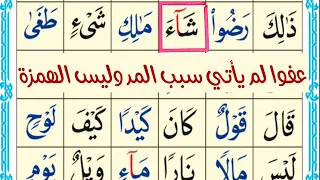 ذَلِكَ رَضُواْ شَآءَ مَلِكِ شَىْءٍ طَغَىٰ
عفوا لم يأتي سبب المد وليس الهمزة
قَالَ قَوْلٌ كَانَ كَيْدًا كَيْفَ لَوْحٍ
لَيْسَ مَالًا نَارًا مَآءٍ وَيْلٌ يَوْمٍ